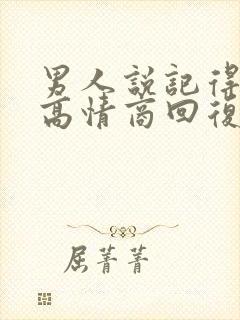 男人説記得
高情商回復
屈菁菁